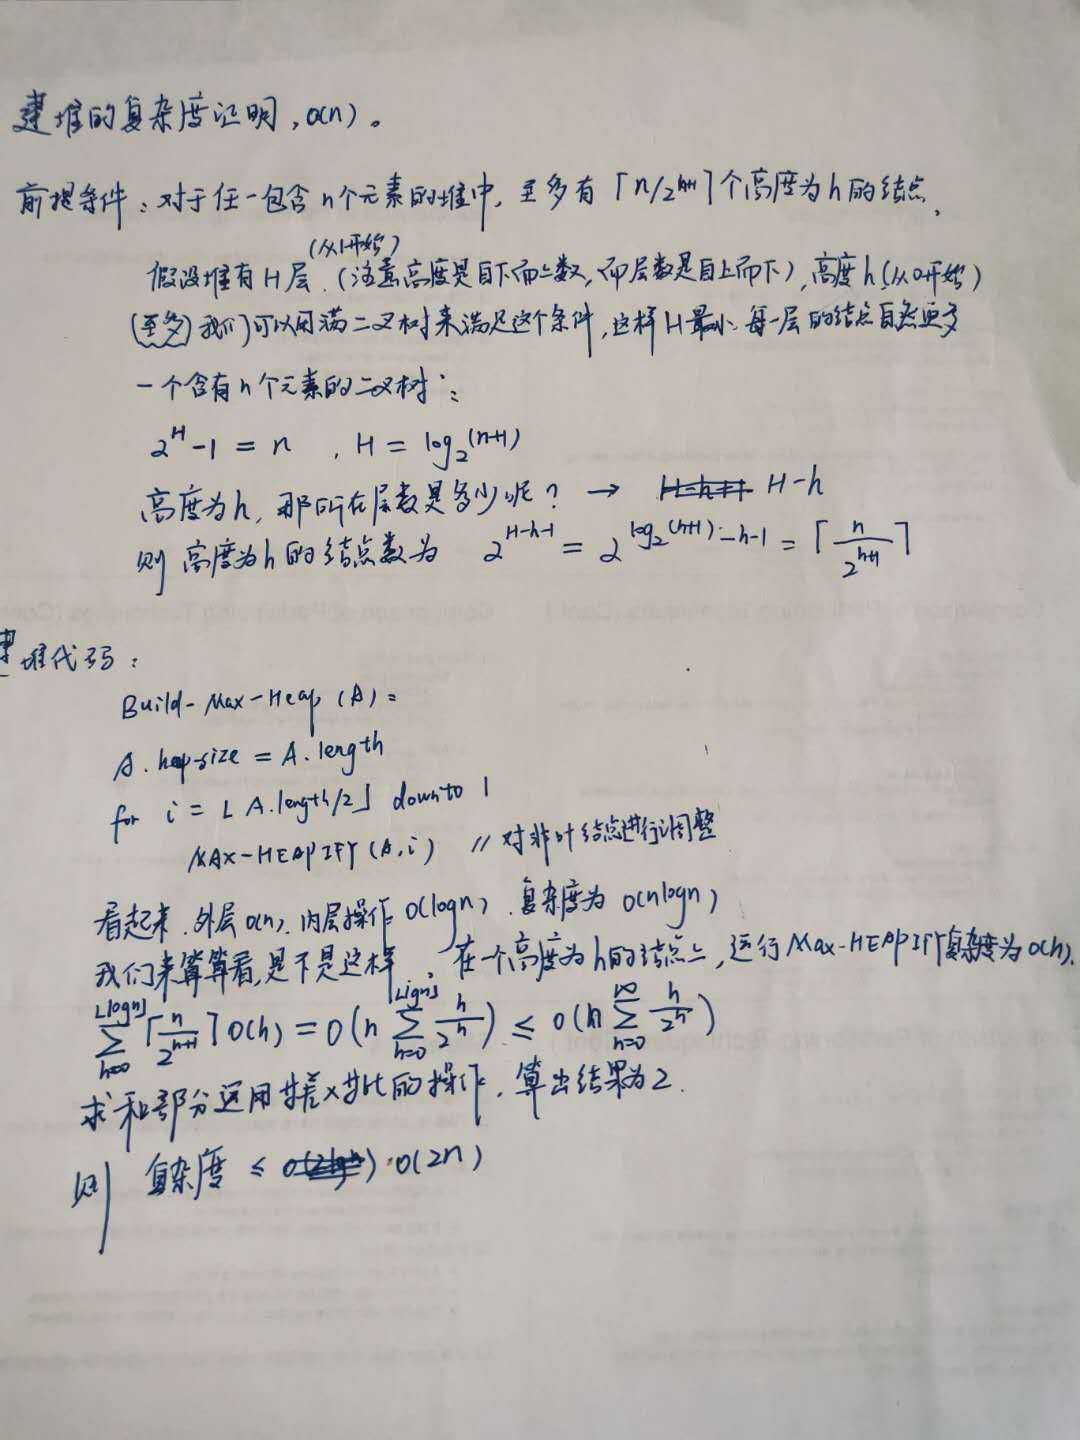 建堆的复杂度证明,O(n)。
前提条件:对于任一包含n个元素的堆中,至多有⌈n/2^{h+1}⌉个高度为h的结点.
(从1开始)
假设堆有H层.(注意高度是自下而上数,而层数是自上而下),高度h(从0开始)
(至多)我们可以用满二叉树来满足这个条件,这样H最小,每一层的结点自然更多
一个含有n个元素的二叉树:
2^H-1=n ,H=log_2^{(n+1)}
高度为h,那所在层数是多少呢? → H-h
则高度为h的结点数为 2^{H-h-1}=2^{log_2^{(n+1)}-h-1}=⌈n/2^{h+1}⌉
建堆代码:
Build-Max-Heap(A)=
A.heap-size=A.length
for i=⌊A.length/2⌋ downto 1
MAX-HEAPIFY(A,i) //对非叶结点进行调整
看起来,外层O(n),内层操作O(logn),复杂度为O(nlogn)
我们来算算看,是不是这样.在一个高度为h的结点上,运行Max-HEAPIFY复杂度为O(h).
∑_{h=0}^{⌊logn⌋}⌈n/2^{h+1}⌉O(h)=O(n∑_{h=0}^{⌊lgn⌋}h/2^h)≤O(n∑_{h=0}^{∞}h/2^h)
求和部分运用等差×等比的操作,算出结果为2.
则 复杂度≤O(2n)